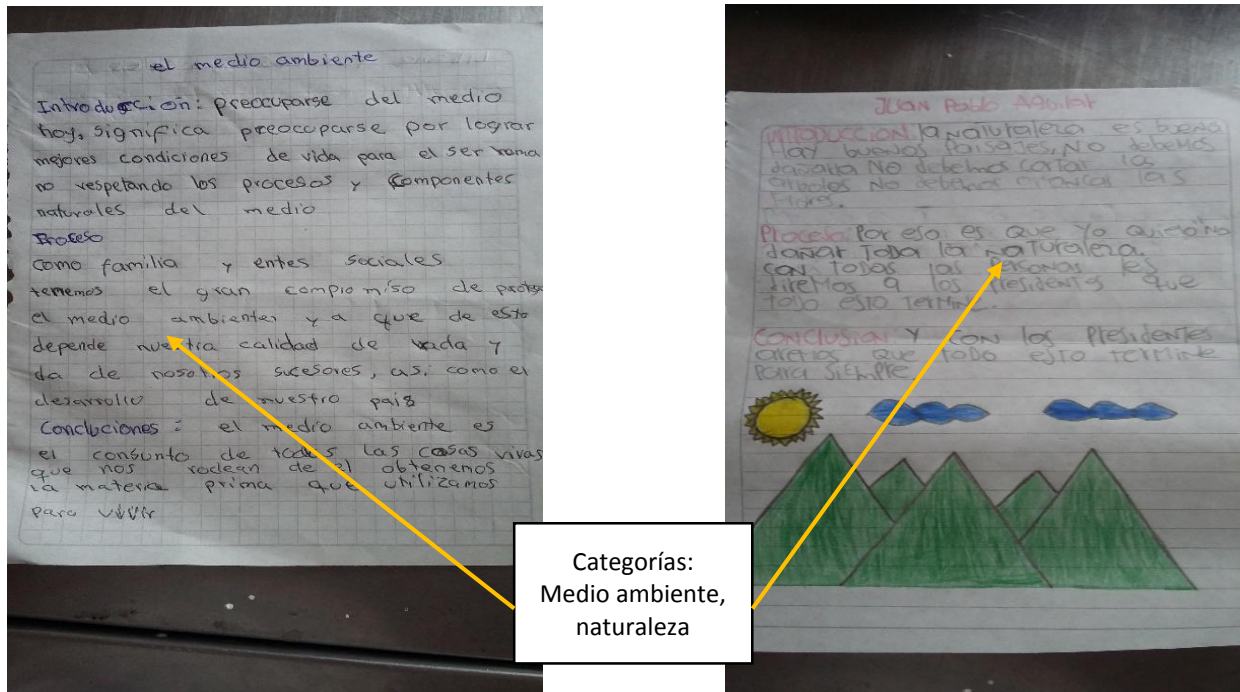 el medio ambiente
Introducción: preocuparse del medio
hoy, significa preocuparse por lograr
mejores condiciones de vida para el ser
no respetando los procesos y componentes
naturales del medio
Proceso
como familia y entes sociales
tenemos el gran compromiso de
el medio ambientes y a que de esto
depende nuestra calidad de vada y
da de nosotros sucesores, así como el
desarrollo de nuestro pais
Concluciones: el medio ambiente es
el consunto de todas las cosas vivas
que nos rodean de el obtenenos
la materia prima que utilizamos
para vivir
JUAN Pablo Aguilar
INTRODUCCION: la naturaleza es buena
Hay buenos Paisajes, NO debemos
dañarla NO debemos cortar los
arboles No debemos arrancar las
Flores.
Proceso: Por eso es que Yo quiero No
dañar Toda la naturaleza.
con todas las Personas les
diremos a los Presidentes que
todo esto termine.
CONCLUSION Y con los Presidentes
aremos que todo esto termine
Para siempre
Categorías:
Medio ambiente,
naturaleza